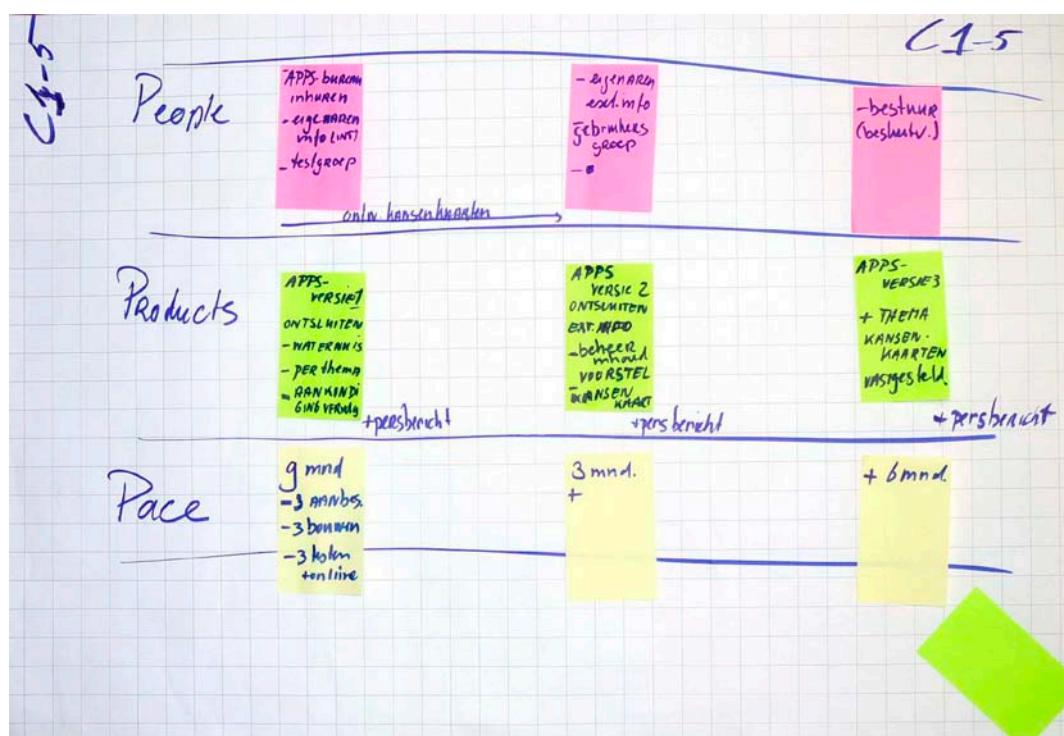 C1-5
C1-5
People
- APPS-bureau
inhuren
- eigenaren
info (int)
- testgroep
- eigenaren
ext. info
- gebruikers
groep
-
- bestuur
(besluitv.)
ontw. kansenkaarten
Products
APPS-
VERSIE 1
ONTSLUITEN
- PER thema
- AANKONDI
GING VERVOLG
+ persbericht
APPS
VERSIE 2
ONTSLUITEN
EXT. INFO
- beheer
inhoud
VOORSTEL
- KANSEN
KAART
+ persbericht
APPS-
VERSIE 3
+ THEMA
KANSEN-
KAARTEN
VASTGESTELD.
+ persbericht
Pace
9 mnd
- 3 AANbes.
- 3 bouwen
- 3 testen
+ online
3 mnd.
+
+ 6 mnd.